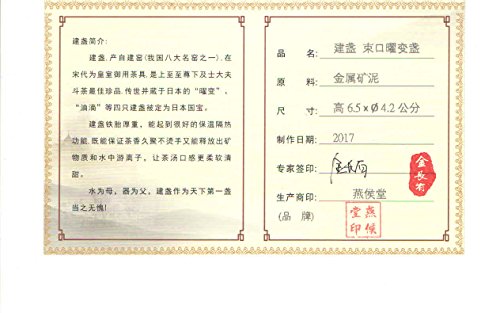 建盏简介:
建盏,产自建窑(我国八大名窑之一),在
宋代为皇室御用茶具,是上至至尊下及士大夫
斗茶最佳珍品,传世并藏于日本的“曜变”,
“油滴”等四只建盏被定为日本国宝。
建盏铁胎厚重,能起到很好的保温隔热
功能,既能保证茶香久聚不烫手又能释放出矿
物质和水中游离子,让茶汤口感更柔软清
甜。
水为母,器为父,建盏作为天下第一盏
当之无愧!
品 名: 建盏 束口曜变盏
原 料: 金属矿泥
尺 寸: 高6.5xØ4.2公分
制作日期: 2017
专家签印:
金長有
生产商印: 燕侯堂
(品 牌)
燕侯堂印